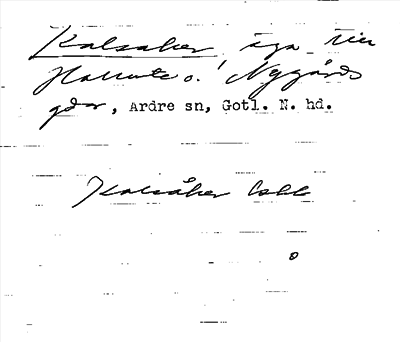 Kalsaker, äga till
Hallute o. Nygårds
gdar, Ardre sn, Gotl. N. hd.
Kalsåker
o